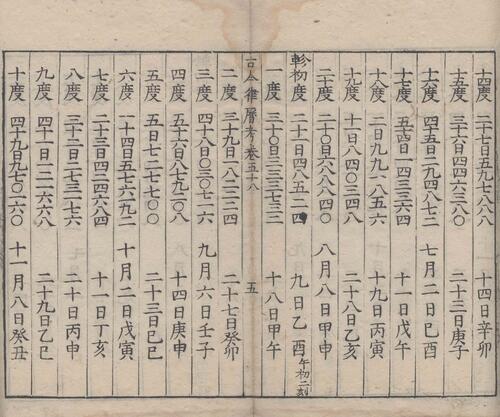 十四度 二十七日五九七八八〇 十四日辛卯
十五度 三十六日四四六三八〇 二十三日庚子
十六度 四十五日二九四八七二 七月二日己酉
十七度 五十四日一四三三六四 十一日戊午
十八度 二日九九一八五六 十九日丙寅
十九度 十一日八四〇三四八 二十八日乙亥
二十度 二十〇日六八八八四〇 八月八日甲申
軫初度 二十一日四八五二四 九日乙酉午初二刻
一度 三十〇日三三三七三二 十八日甲午
古今律曆考卷五十八 五
二度 三十九日一八二二二四 二十七日癸卯
三度 四十八日〇三〇七一六 九月六日壬子
四度 五十六日八七九二〇八 十四日庚申
五度 五日七二七七〇〇 二十三日己巳
六度 一十四日五七六一九二 十月二日戊寅
七度 二十三日四二四六八四 十一日丁亥
八度 三十二日二七三一七六 二十日丙申
九度 四十一日一二一六六八 二十九日乙巳
十度 四十九日九七〇一六〇 十一月八日癸丑